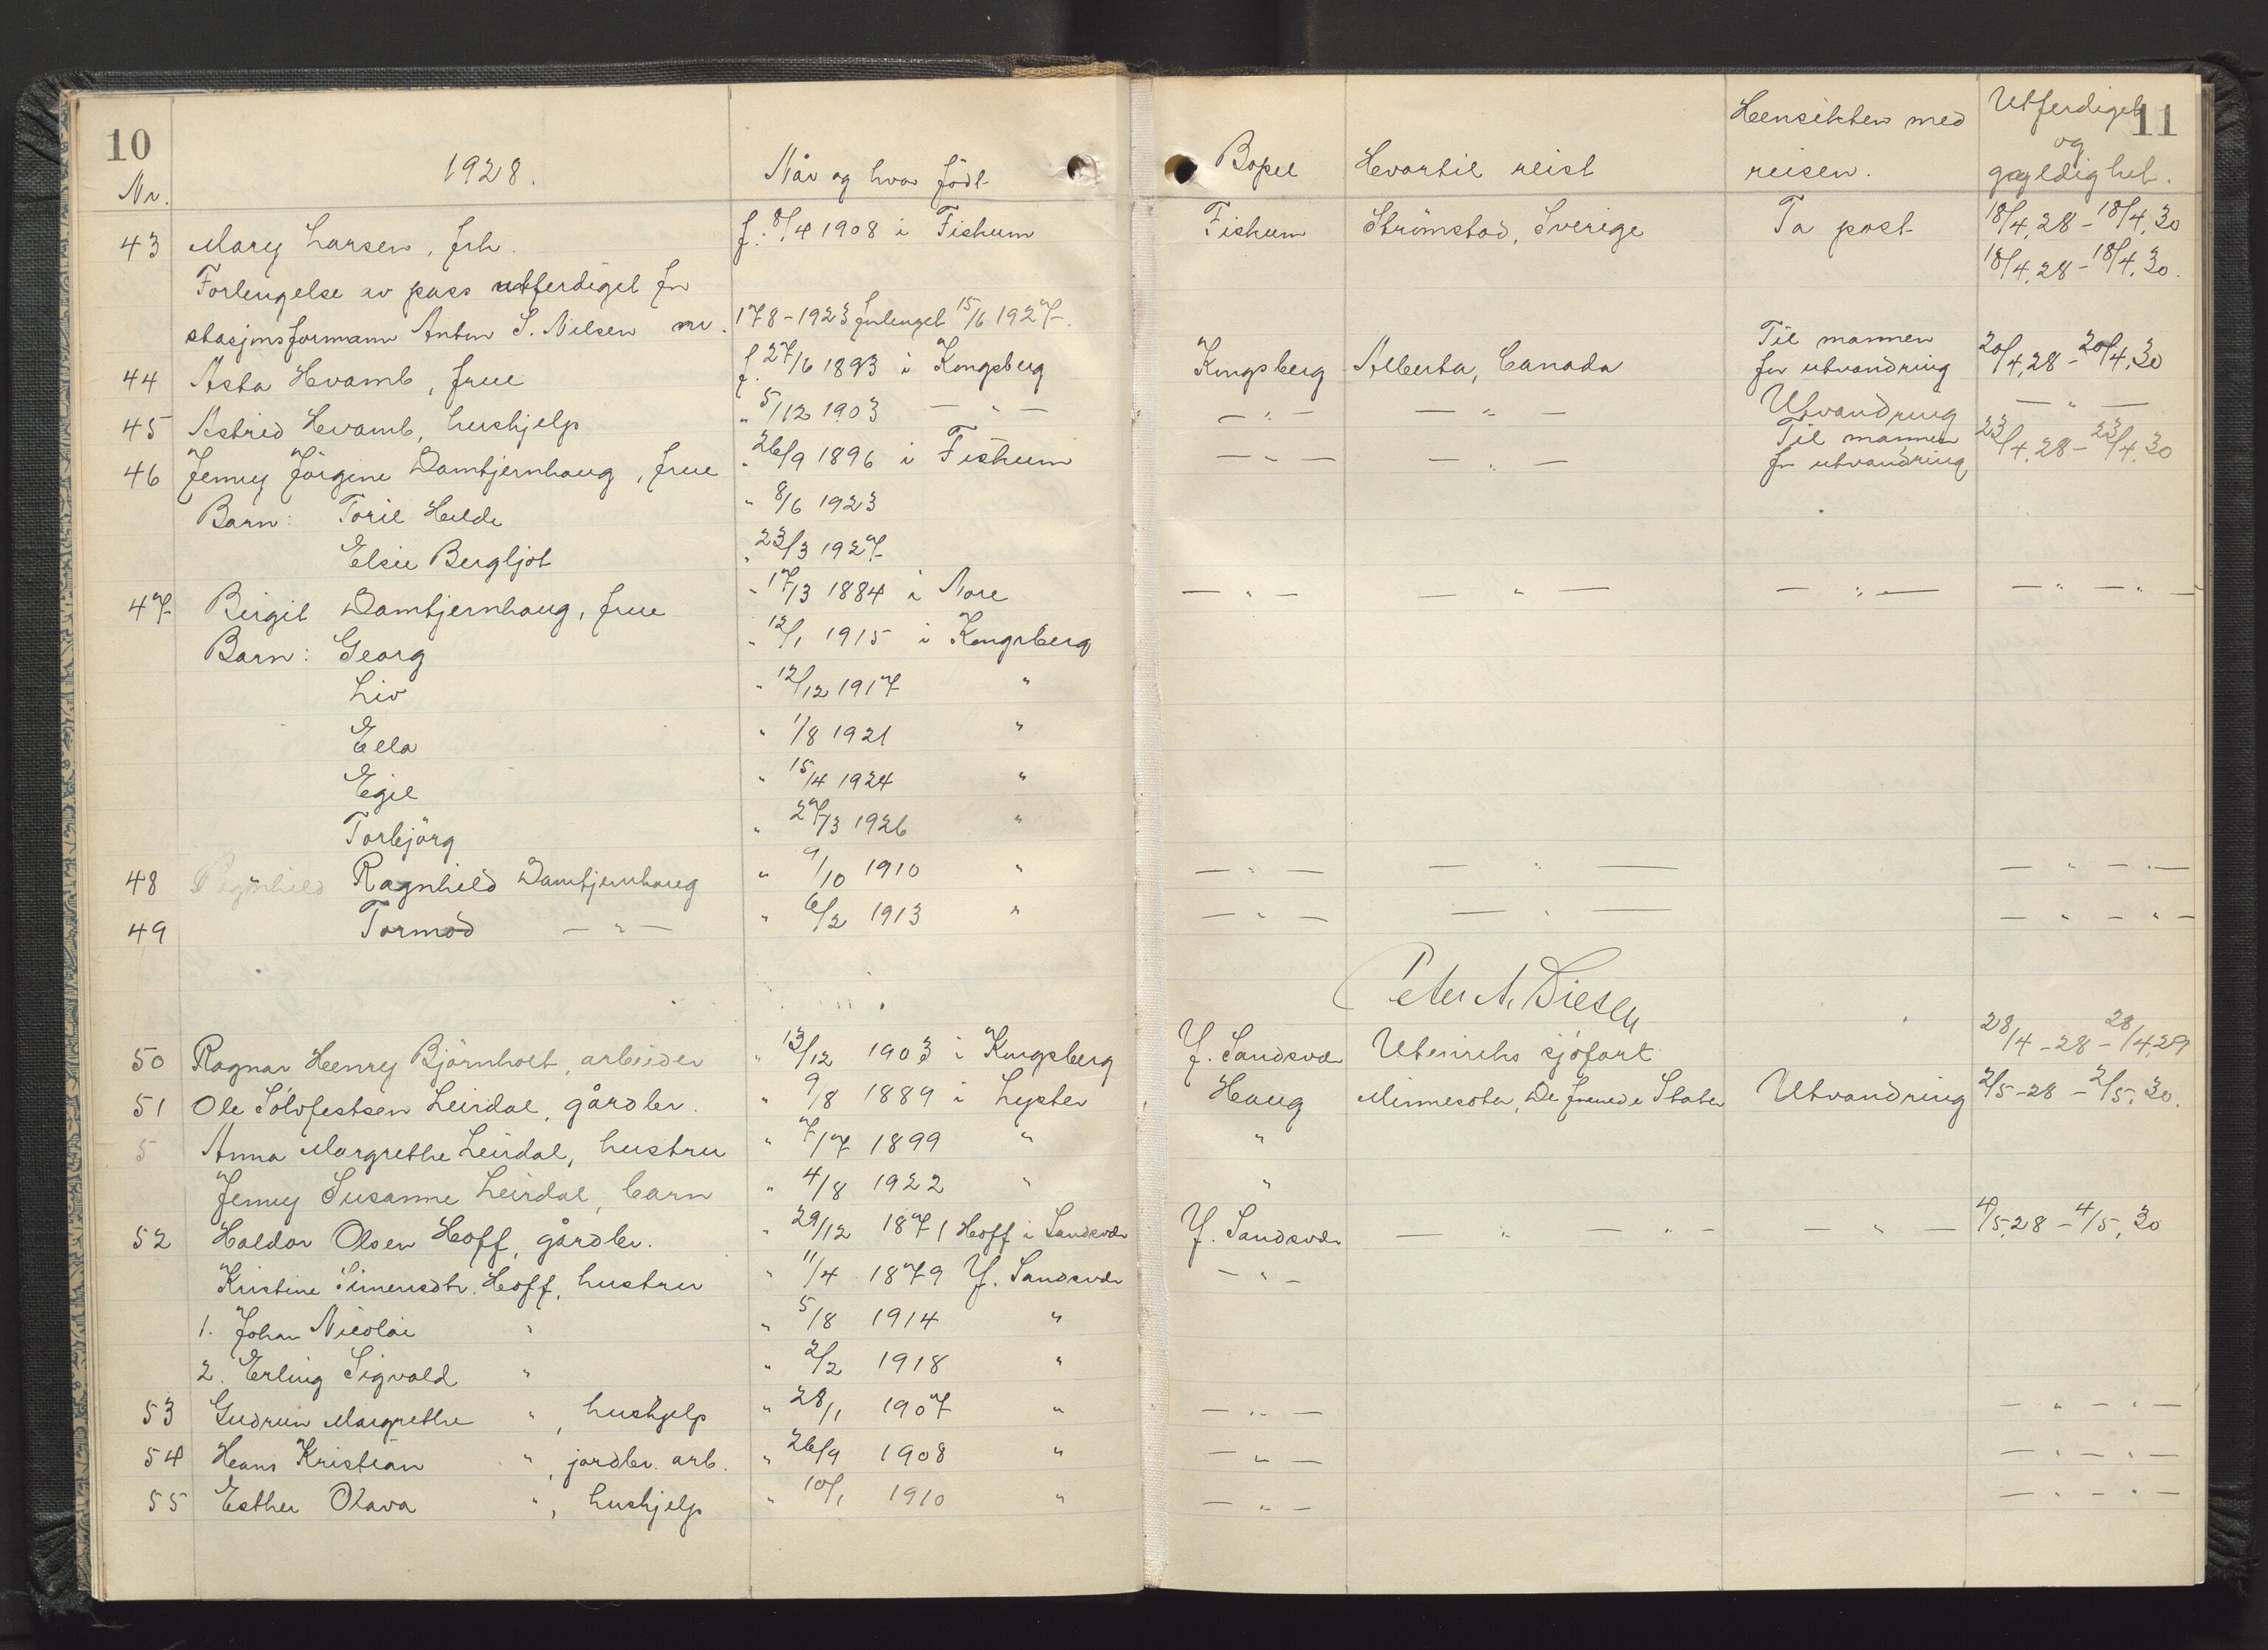 10
11
Nr. 1928. Når og hvor født Bopel Hvortil reist Hensikten med reisen. Utferdiget og gyldighet.
43 Mary Larsen, frk. f. 8/4 1908 i Fiskum Fiskum Strömstad, Sverige Ta post 18/4.28 - 18/4.30
Forlengelse av pass utferdiget for 18/4.28 - 18/4.30.
stasjonsformann Anton S. Nilsen nr. 178-1923 forlenget 15/6 1927.
44 Asta Hvamb, frue f. 27/6 1893 i Kongsberg Kongsberg Alberta, Canada Til mannen for utvandring 20/4.28 - 20/4.30
45 Astrid Hvamb, hushjelp " 5/12 1903 — " — — " — — " — Utvandring — " —
46 Jenny Jörgine Damtjernhaug, frue " 26/9 1896 i Fiskum — " — — " — Til mannen for utvandring 23/4.28 - 23/4.30
Barn: Toril Helde " 8/6 1923
Elsie Bergljot " 23/3 1927
47 Birgit Damtjernhaug, frue " 17/3 1884 i Nore — " — — " — — " — — " — " —
Barn: Georg " 12/1 1915 i Kongsberg
Liv " 12/12 1917 "
Ella " 1/8 1921 "
Egil " 15/4 1924 "
Torbjörg " 27/3 1926 "
48 Ragnhild Ragnhild Damtjernhaug " 9/10 1910 " — " — — " — — " — " —
49 Tormod — " — " 6/2 1913 " — " — — " — — " — " —
Peter A. Diesen
50 Ragnar Henry Björnholt, arbeider " 13/12 1903 i Kongsberg Y. Sandsvær Utenriks sjöfart 28/4-28 - 28/4.29
51 Ole Sölvfestsen Leirdal, gårdbr. " 9/8 1889 i Lyster Haug Minnesota, De forenede Stater Utvandring 2/5-28 - 2/5.30.
5 Anna Margrethe Leirdal, hustru " 7/7 1899 " "
Jenny Susanne Leirdal, barn " 4/8 1922 " "
52 Haldor Olsen Hoff, gårdbr. " 29/12 1871 Hoff i Sandsvær Y. Sandsvær — " — " — — " — 4/5.28 - 4/5.30
Kristine Simensdtr. Hoff, hustru " 11/4 1879 Y. Sandsvær — " —
1. Johan Nicolai " " 5/8 1914 "
2. Erling Sigvald " " 2/2 1918 "
53 Gudrun Margrethe ", hushjelp " 28/1 1907 " — " — — " — " —
54 Hans Kristian ", jordbr. arb. " 26/9 1908 " — " — — " — " —
55 Esther Olava ", hushjelp " 10/1 1910 " — " — — " — " —